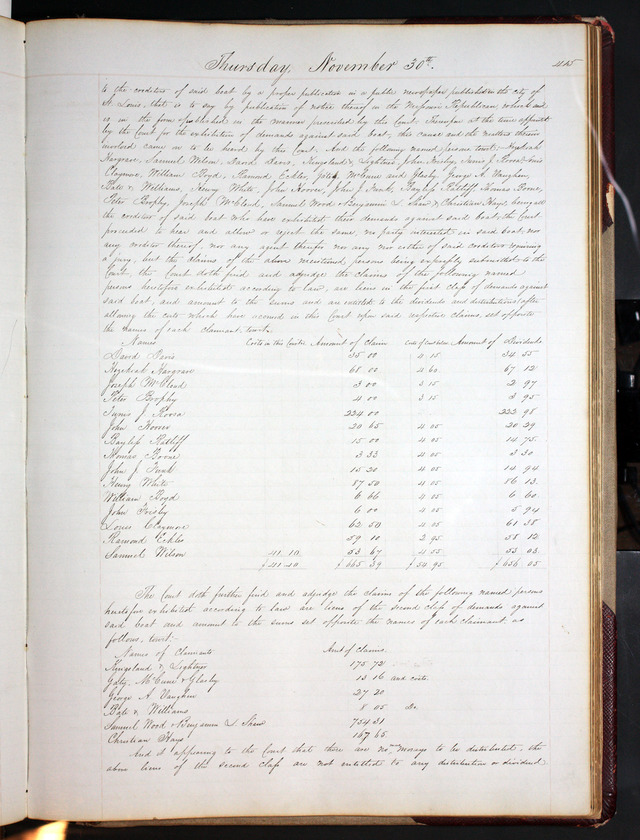 Thursday, November 30th. 415
to the creditors of said boat by a proper publication in a public newspaper published in the city of
St. Louis, that is to say by publication of notice thereof in the Missouri Republican, which
is in the form of publication in the manner prescribed by this Court. Therefore at the time appointed
by the Court for the exhibition of demands against said boat, this cause and the matters therein
involved came on to be heard by this Court. And the following named persons towit: Hezekiah
Hargrave, Samuel Wilson, David Davis, Kingsland & Lightner, John Frisby, Tunis J. Roosa, Louis
Claymore, William Boyd, Ramond Eckler, Gaty, McCune and Glasby, George A. Vaughen,
Bate & Williams, Henry White, John Hoover, John J. Funk, Bayliss Ratliff, Thomas Boone,
Peter Brophy, Joseph McClead, Samuel Wood & Benjamin L. Shaw & Christian Hays being all
the creditors of said boat who have exhibited their demands against said boat, the Court
proceeded to hear and allow or reject the same, no party interested in said boat nor
any creditor thereof, nor any agent therefor nor any nor either of said creditors requiring
a jury, but the claims of the above mentioned persons being expressly submitted to the
Court, the Court doth find and adjudge the claims of the following named
persons heretofore exhibited according to law, are liens in the first class of demands against
said boat, and amount to the sums and are entitled to the dividends and distributions after
allowing the costs which have accrued in this Court upon said respective claims, set opposite
the names of each claimant, towit:
Names Costs in this Court Amount of Claim Costs of Amount of Dividends
David Davis 35 00 4 15 34 55
Hezekiah Hargrave 68 00 4 60 67 12
Joseph McClead 3 00 3 15 2 97
Peter Brophy 4 00 3 15 3 95
Tunis J. Roosa 224 00 222 98
John Hoover 20 65 4 05 20 29
Bayliss Ratliff 15 00 4 05 14 75
Thomas Boone 3 33 4 05 3 30
John J. Funk 15 20 4 05 14 94
Henry White 87 50 4 05 86 13
William Boyd 6 66 4 05 6 60
John Frisby 6 00 4 05 5 94
Louis Claymore 62 50 4 05 61 38
Ramond Eckler 59 10 2 95 58 12
Samuel Wilson 41 10 53 67 4 55 53 03
$41 10 $665 39 $54 95 $656 05
The Court doth further find and adjudge the claims of the following named persons
heretofore exhibited according to law are liens of the second class of demands against
said boat and amount to the sums set opposite the names of each claimant as
follows, towit:
Names of Claimants Amt of claims.
Kingsland & Lightner 175 72
Gaty, McCune & Glasby 13 16 and costs.
George A. Vaughen 27 20
Bate & Williams 8 05 Do.
Samuel Wood & Benjamin L. Shaw 754 31
Christian Hays 167 65
And it appearing to the Court that there are no moneys to be distributed, the
above liens of the second class are not entitled to any distribution or dividend